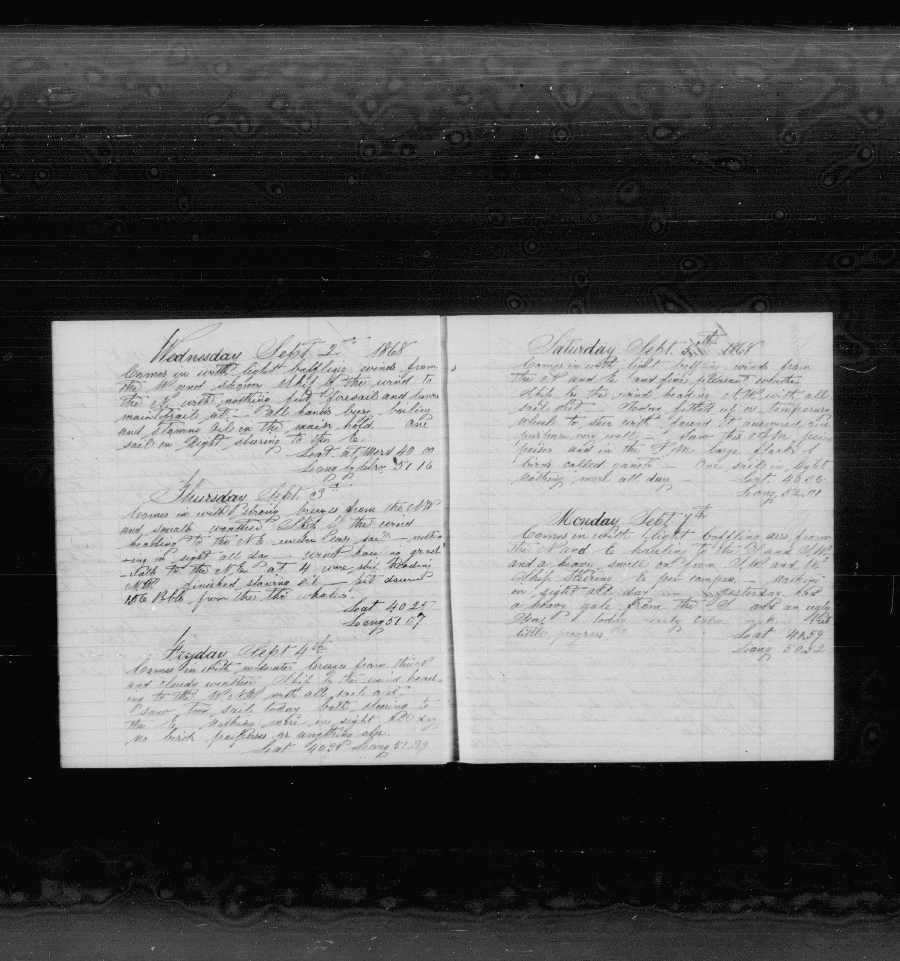 Wednesday Sept 2nd 1868
Comes in with light baffling winds from
the W and Ship by the wind to
the N with nothing but foresail and lower
maintopsail set — all hands busy boiling
and stowing oil in the main hold. One
sail in sight steering to the E.
Lat. at Merd 40 00
Long by Chro. 51 16
Thursday Sept. 3d
Comes in with strong breezes from the NW
and squally weather Ship by the wind
heading to the NE under easy sail — noth
ing in sight all day — wind
to the NE at 4 wore ship heading
NW. finished stowing oil —
186 Bbls from the two whales.
Lat 40 25
Long 51 07
Fryday Sept 4th
Comes in with moderate breezes from the
and cloudy weather Ship by the wind head
ing to the W NW with all sail out
Saw two sail today both steering to
the E. Nothing more in sight all day
no birds porpoises or anything else.
Lat 40 Long 51.39
Saturday Sept. 5th 1868
Comes in with light baffling winds from
the N and E and fine pleasant weather
Ship by the wind heading NW with all
sail out. Having fitted up a temporary
wheel to steer with found it answered our
purpose very well. Saw this A.M. por
poises and in the P.M. large flock of
birds called — One sail in sight
nothing more all day — Lat.
Long. 52.01
Monday Sept 7th
Comes in with light baffling airs from
the N and E hauling to the S and SW
and a heavy swell on from SW and W
Ship Steering to per compass — nothing
in sight all day yesterday had
a heavy gale from the S and an ugly
Sea. today nearly calm but
little progress. Lat 41.59
Long 50.52